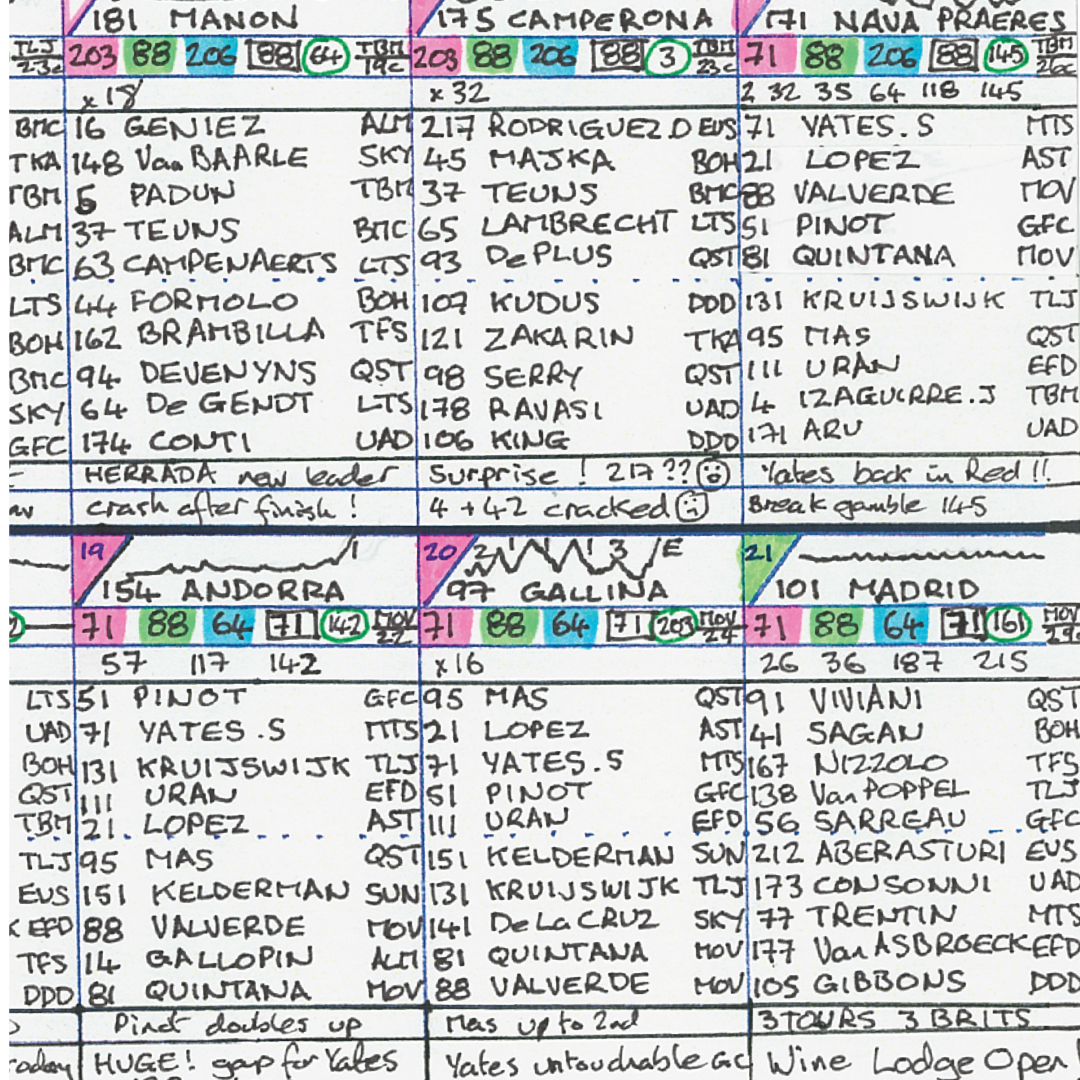 181 MANON
203 88 206 88 64 TBM 19c
x 18
16 GENIEZ ALM
148 Van BAARLE SKY
5 PADUN TBM
37 TEUNS BMC
63 CAMPENAERTS LTS
44 FORMOLO BOH
162 BRAMBILLA TFS
94 DEVENYNS QST
64 De GENDT LTS
174 CONTI UAD
HERRADA new leader
crash after finish !
175 CAMPERONA
203 88 206 88 3 TBM 23c
x 32
217 RODRIGUEZ.D EUS
45 MAJKA BOH
37 TEUNS BMC
65 LAMBRECHT LTS
93 De PLUS QST
107 KUDUS DDD
121 ZAKARIN TKA
98 SERRY QST
178 RAVASI UAD
106 KING DDD
Surprise ! 217 ??
4 + 42 cracked
171 NAVA PRAERES
71 88 206 88 145 TBM 26c
2 32 35 64 118 145
71 YATES.S MTS
21 LOPEZ AST
88 VALVERDE MOV
51 PINOT GFC
81 QUINTANA MOV
131 KRUIJSWIJK TLJ
95 MAS QST
111 URAN EFD
4 IZAGUIRRE.J TBM
171 ARU UAD
Yates back in Red !!
Break gamble 145
TLJ 23c
BMC
TKA
TBM
ALM
BMC
LTS
BOH
BMC
SKY
GFC
19
154 ANDORRA
71 88 64 71 142 MOV 22
57 117 142
51 PINOT GFC
71 YATES.S MTS
131 KRUIJSWIJK TLJ
111 URAN EFD
21 LOPEZ AST
95 MAS QST
151 KELDERMAN SUN
88 VALVERDE MOV
14 GALLOPIN ALM
81 QUINTANA MOV
Pinot doubles up
HUGE! gap for Yates
20 2 1 1 1 3 E
97 GALLINA
71 88 64 71 203 MOV 24
x16
95 MAS QST
21 LOPEZ AST
71 YATES.S MTS
51 PINOT GFC
111 URAN EFD
151 KELDERMAN SUN
131 KRUIJSWIJK TLJ
141 De La CRUZ SKY
81 QUINTANA MOV
88 VALVERDE MOV
Mas up to 2nd
Yates untouchable GC
21
101 MADRID
71 88 64 71 161 MOV
26 36 187 215
91 VIVIANI QST
41 SAGAN BOH
167 NIZZOLO TFS
138 Van POPPEL TLJ
56 SARREAU GFC
212 ABERASTURI EUS
173 CONSONNI UAD
77 TRENTIN MTS
177 Van ASBROECK EFD
105 GIBBONS DDD
3 TOURS 3 BRITS
Wine Lodge Open!
LTS
UAD
BOH
QST
TBM
TLJ
EUS
K EFD
TFS
DDD